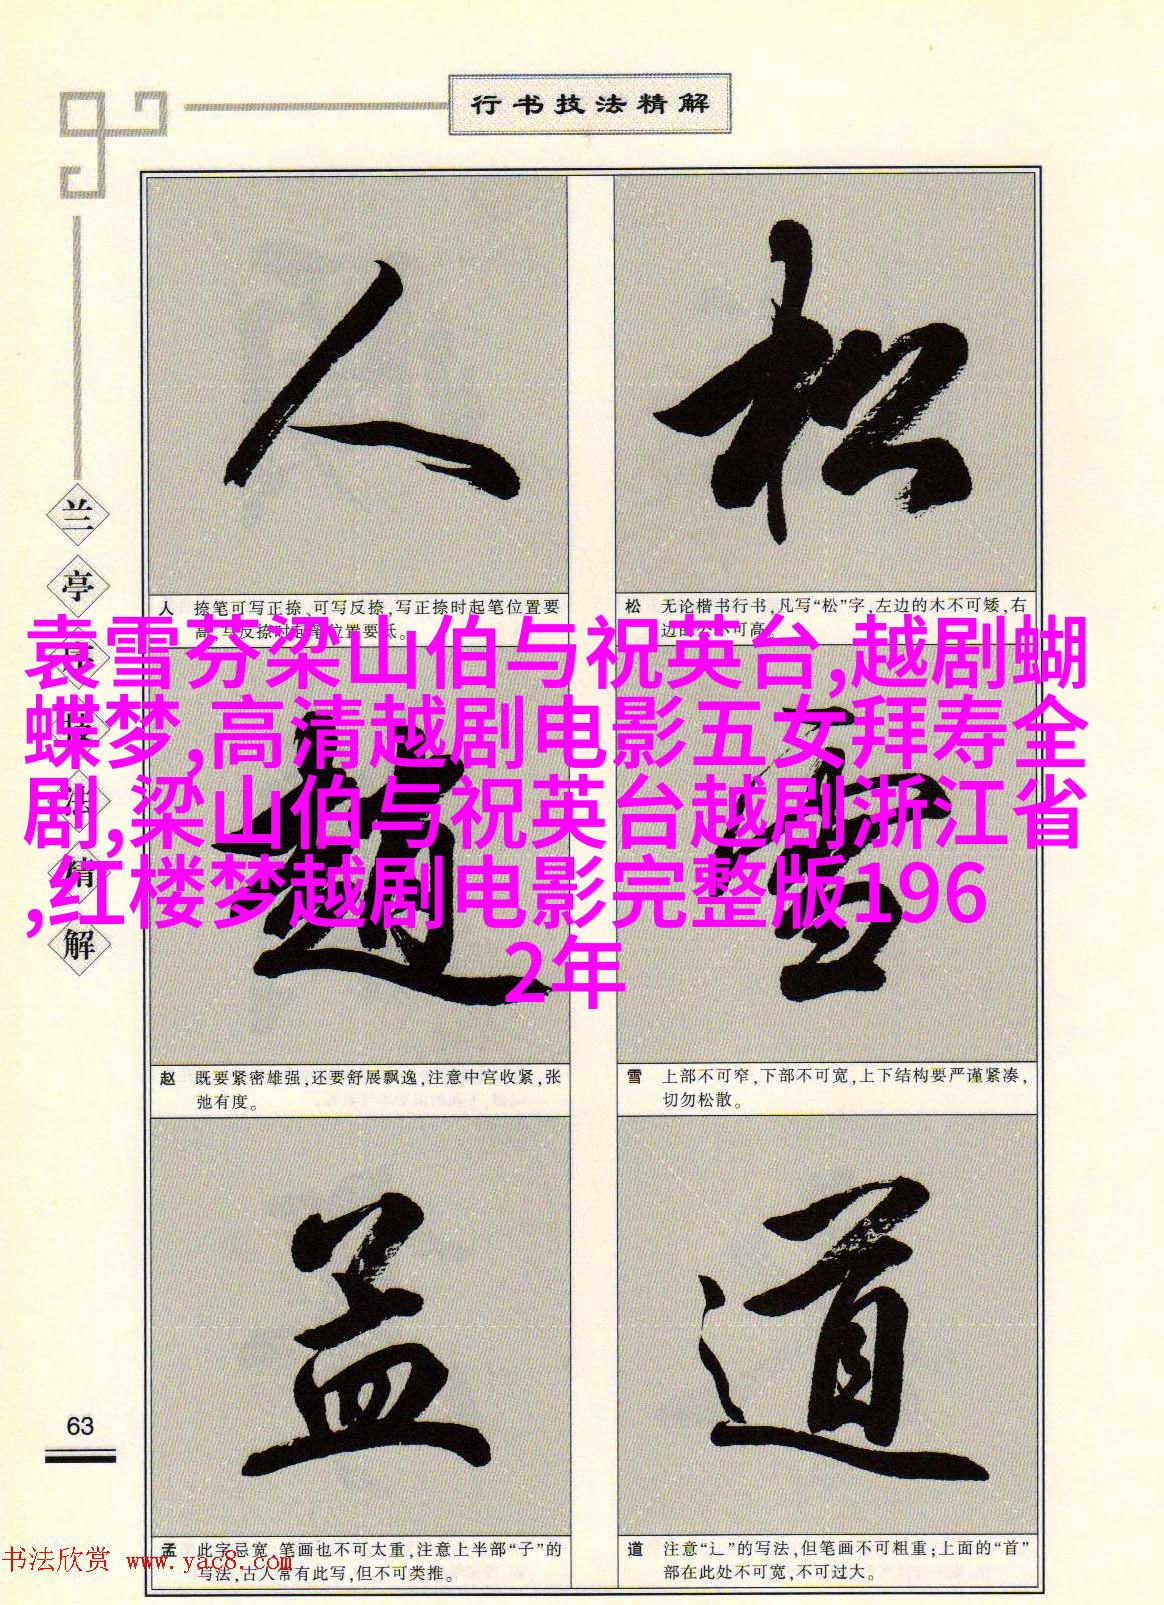 行书技法精解
人
松
人 捺笔可写正捺、可写反捺,写正捺时起笔位置要
松 无论楷书行书,凡写“松”字,左边的木不可矮,右
袁雪芬梁山伯与祝英台,越剧蝴
蝶梦,高清越剧电影五女拜寿全
剧,梁山伯与祝英台越剧浙江省
,红楼梦越剧电影完整版196
2年
赵
雪
赵 既要紧密雄强,还要舒展飘逸,注意中宫收紧,张
弛有度。
雪 上部不可窄,下部不可宽,上下结构要严谨紧凑,
切勿松散。
孟
道
孟 此字忌宽,笔画也不可太重,注意上半部“子”的
写法,古人常有此写,但不可类推。
道 注意“辶”的写法,但笔画不可粗重;上面的“首”
部在此处不可宽,不可过大。
兰
亭
解
63
书法欣赏 www.yac8.com